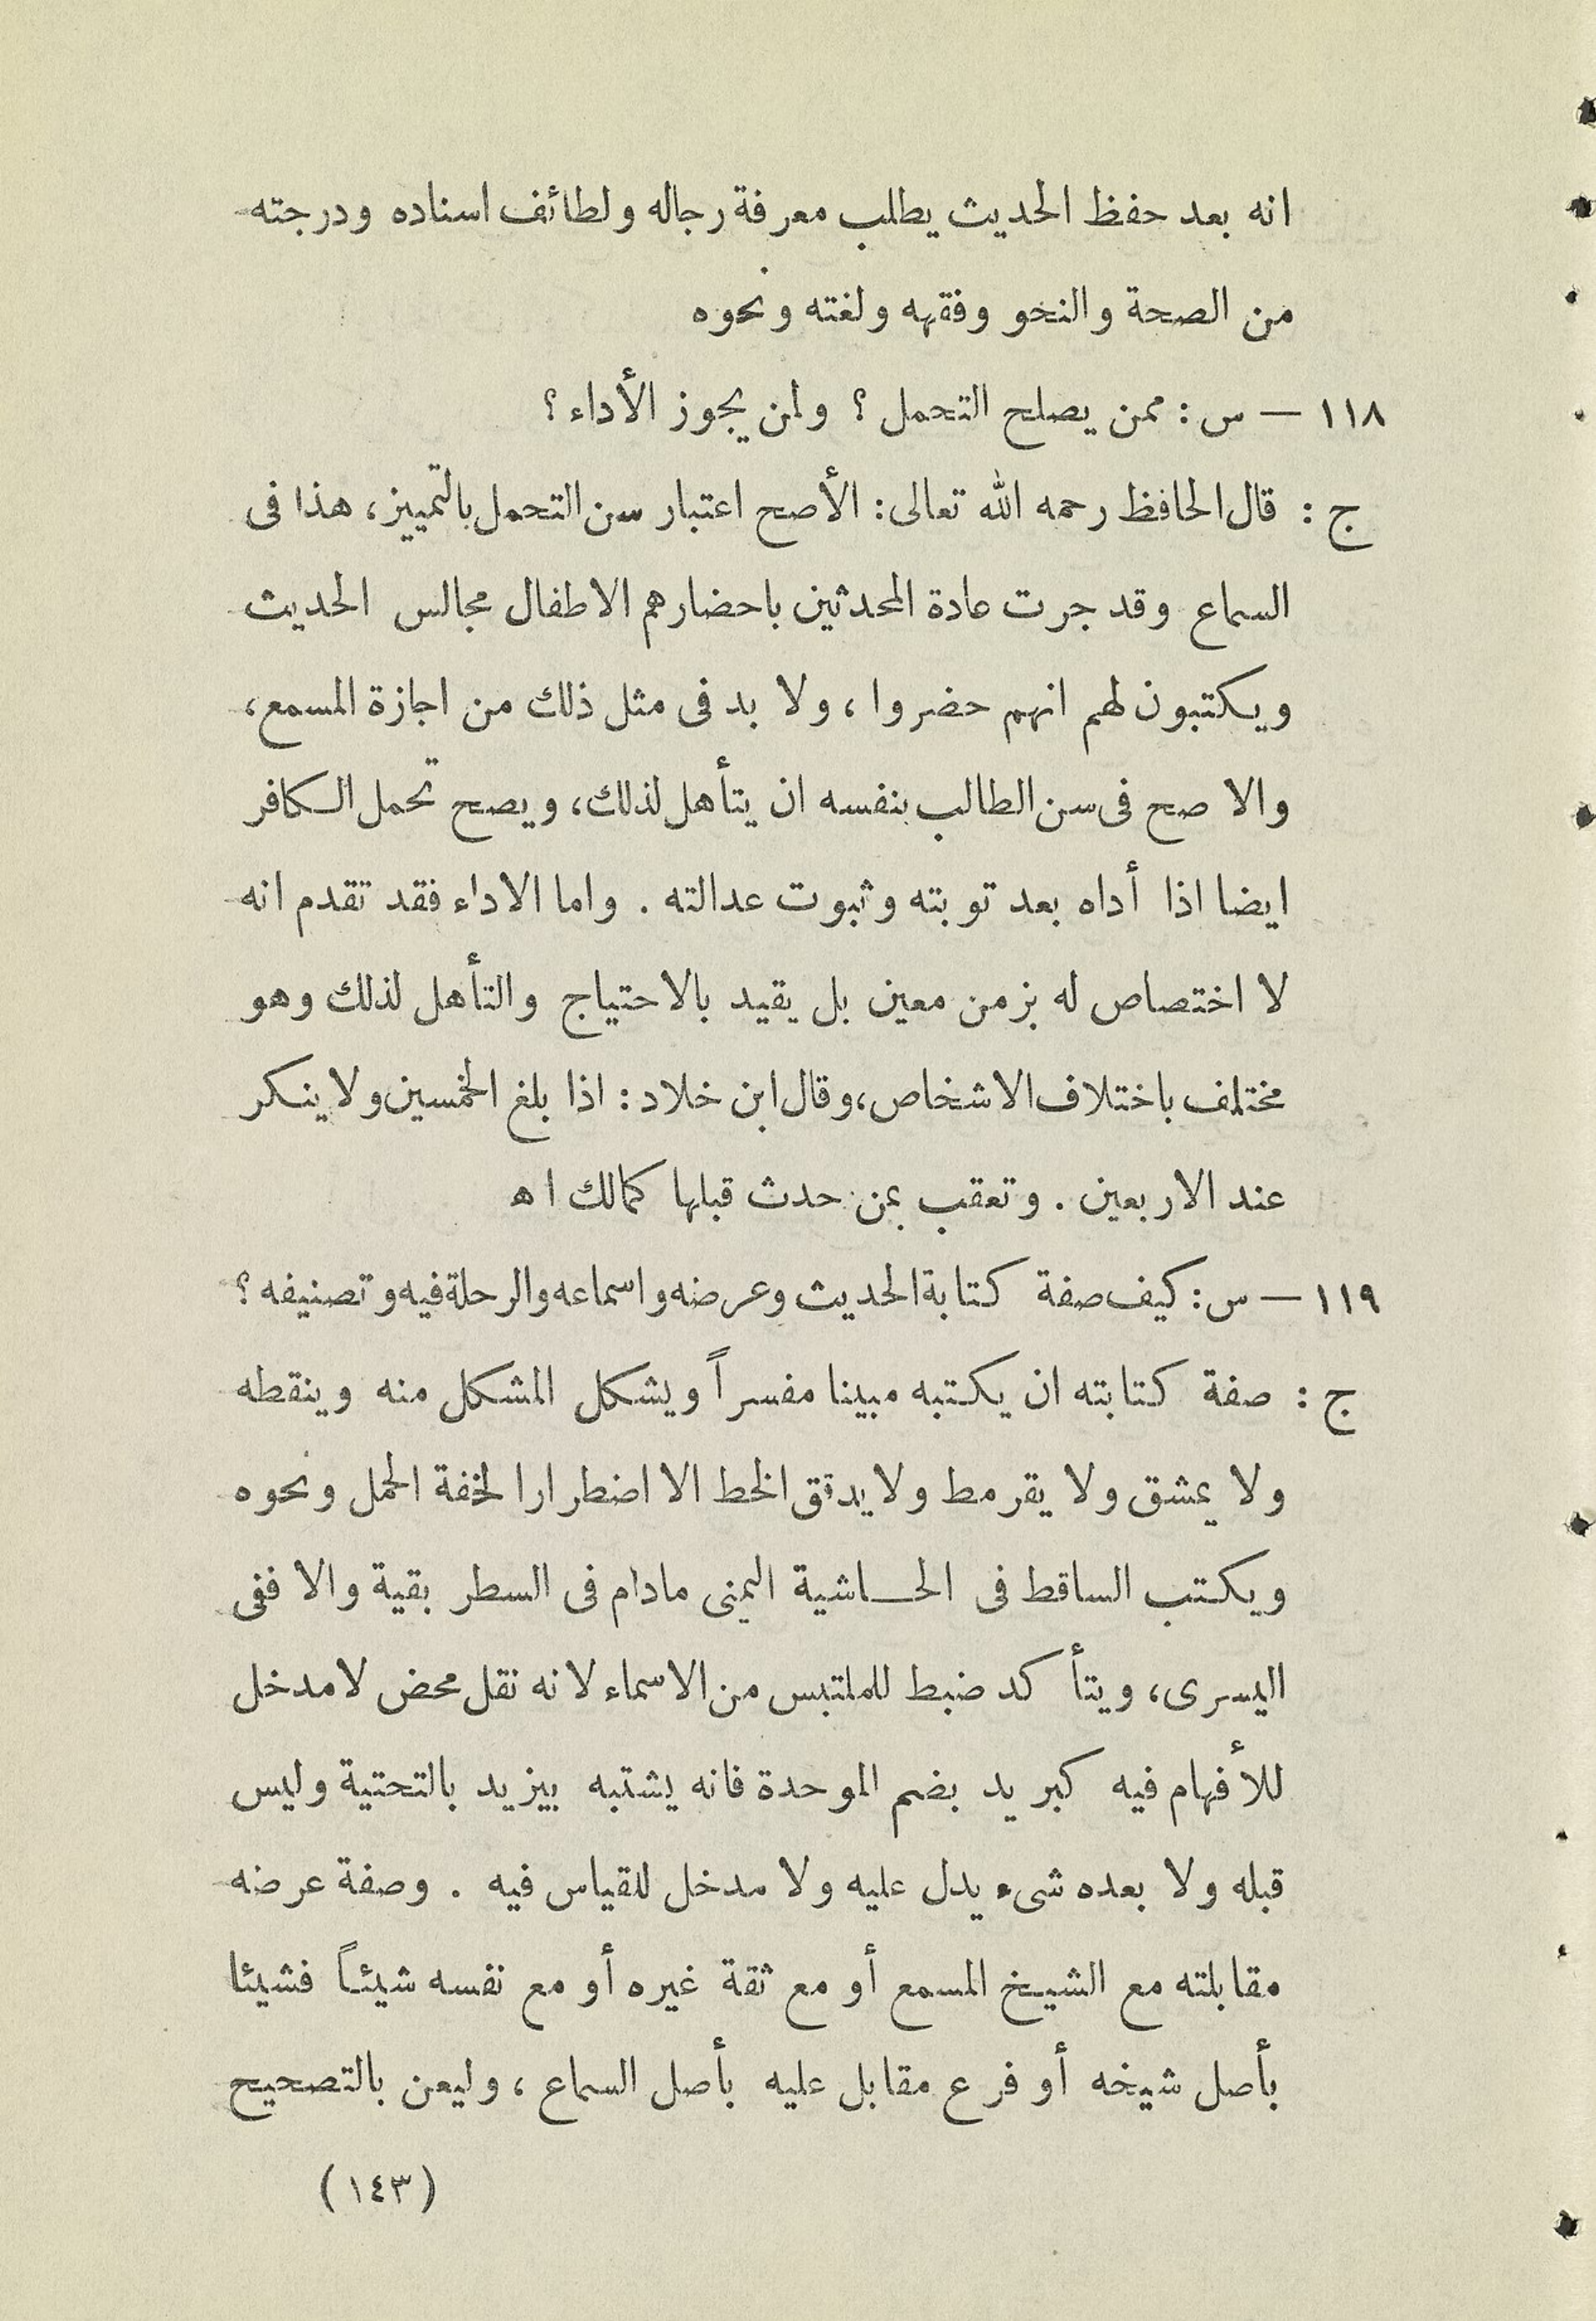 انه بعد حفظ الحديث يطلب معرفة رجاله ولطائف اسناده ودرجته
من الصحة والنحو وفقهه ولغته ونحوه
١١٨ — س : ممن يصلح التحمل ؟ ولمن يجوز الأداء ؟
ج : قال الحافظ رحمه الله تعالى : الأصح اعتبار سن التحمل بالتمييز ، هذا فى
السماع وقد جرت عادة المحدثين باحضارهم الاطفال مجالس الحديث
ويكتبون لهم انهم حضروا ، ولا بد فى مثل ذلك من اجازة المسمع ،
والا صح فى سن الطالب بنفسه ان يتأهل لذلك ، ويصح تحمل الكافر
ايضا اذا أداه بعد توبته وثبوت عدالته . واما الاداء فقد تقدم انه
لا اختصاص له بزمن معين بل يقيد بالاحتياج والتأهل لذلك وهو
مختلف باختلاف الاشخاص ، وقال ابن خلاد : اذا بلغ الخمسين ولا ينكر
عند الاربعين . وتعقب بمن حدث قبلها كمالك اه
١١٩ — س : كيف صفة كتابة الحديث وعرضه واسماعه والرحلة فيه وتصنيفه ؟
ج : صفة كتابته ان يكتبه مبينا مفسراً ويشكل المشكل منه وينقطه
ولا يمشق ولا يقرمط ولا يدقق الخط الا اضطرارا لخفة الحمل ونحوه
ويكتب الساقط فى الحـاشية اليمنى مادام فى السطر بقية والا ففى
اليسرى ، ويتأ كد ضبط للملتبس من الاسماء لانه نقل محض لا مدخل
للأفهام فيه كبريد بضم الموحدة فانه يشتبه بيزيد بالتحتية وليس
قبله ولا بعده شىء يدل عليه ولا مدخل للقياس فيه . وصفة عرضه
مقابلته مع الشيخ المسمع أو مع ثقة غيره أو مع نفسه شيئاً فشيئا
بأصل شيخه أو فرع مقابل عليه بأصل السماع ، وليعن بالتصحيح
( ١٤٣ )